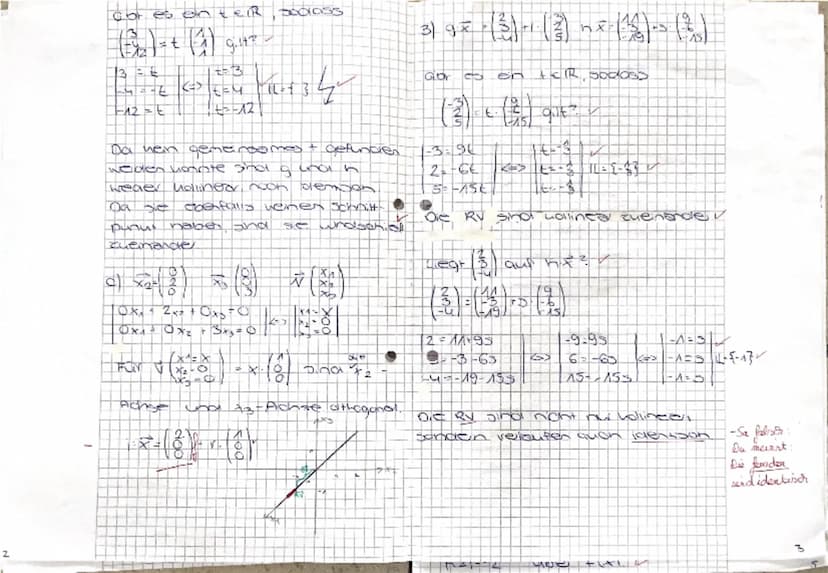 Gibt es ein t ∈ ℝ, sodass
(3 -4 -12) = t (1 -1 1) gilt?
|3 = t | |t=3 |
|-4 = -t | <=> |t=4 | 𝕃={ }
|-12 = t | |t=-12|
Da kein gemeinsames t gefunden
werden konnte sind g und h
weder kollinear, noch identisch.
Da sie ebenfalls keinen Schnitt-
punkt haben, sind sie windschief
zueinander
c) x₂=(0 2 0) x₃ (0 0 3) N (x₁ x₂ x₃)
|0x₁ + 2x₂ + 0x₃=0| <=> |x₁ = x|
|0x₁ + 0x₂ + 3x₃=0| |x₂=0|
|x₃=0|
Für v (x₁=x x₂=0 x₃=0) = x·(1 0 0) sind x₂-
Achse und x₃-Achse orthogonal.
i: x=(2 0 0) + r·(1 0 0)
2
3) g x = (2 3 -4)+r·(-3 2 5) h x=(11 -3 -19)+s(9 -6 -15)
Gibt es ein t∈ℝ, sodass
(-3 2 5)=t·(9 -6 -15) gilt?
|-3=9t | |t=-⅓|
|2=-6t | <=> |t=-⅓| 𝕃={-⅓}
|5=-15t| |t=-⅓|
Die RV sind kollinear zueinander
Liegt (2 3 -4) auf h x?
(2 3 -4)=(11 -3 -19)+s(9 -6 -15)
|2=11+9s | |-9=9s | |-1=s|
|3=-3-6s | <=> |6=-6s | <=> |-1=s| 𝕃={-1}
|-4=-19-15s| |15=-15s| |-1=s|
Die RV sind nicht nur kollinear,
sondern verlaufen auch identisch
Du meinst:
Die Geraden
sind identisch
3